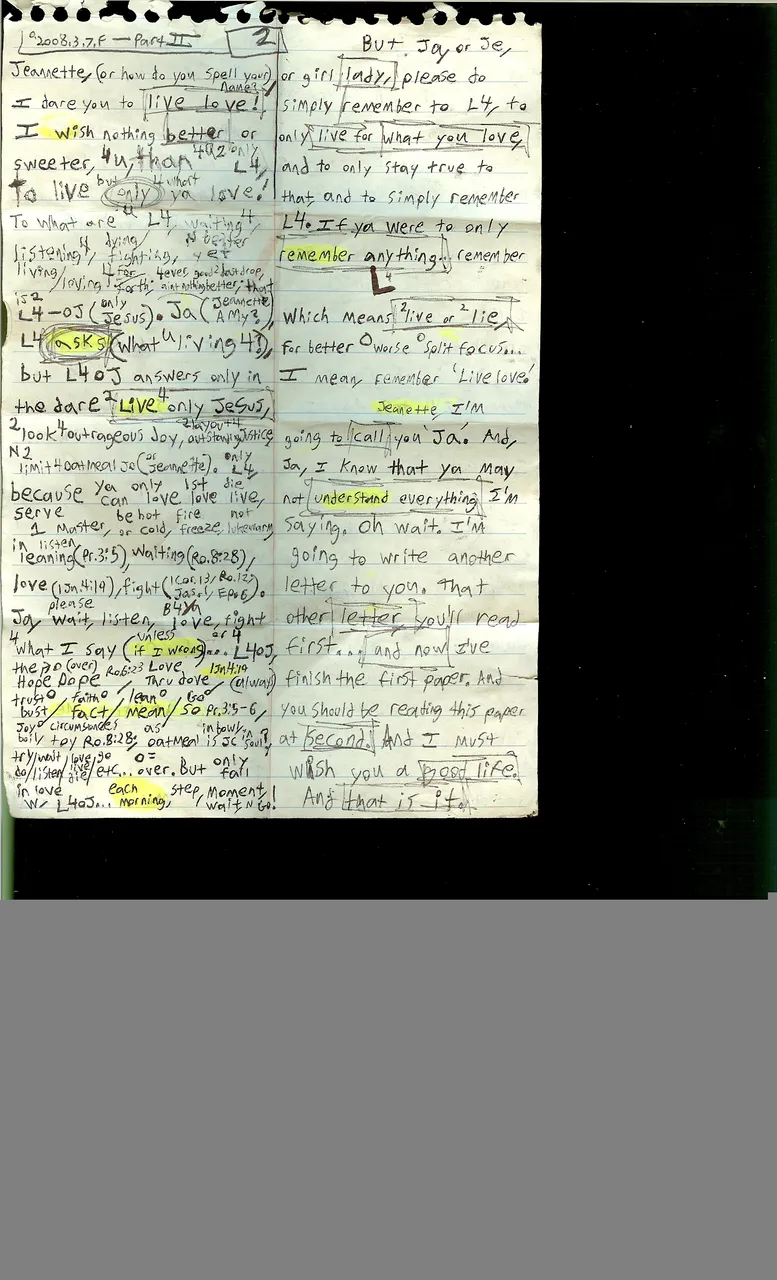 2008.3.7.F — Part II 2
Jeannette, (or how do you spell your name?)
I dare you to live love!
I wish nothing better or
sweeter, 4u, than 4u2 only L4,
To live but only 4 what ya love!
To what are u L4, waiting,
listening, dying/fighting, yet
living/loving
is2
L4-OJ (only Jesus). Ja (Jeannette Amy?),
L4 asks (what u living 4?),
but L4OJ answers only in
the dare 2 Live 4 only Jesus,
2 look 4 outrageous Joy, outstanding Justice,
N2
limit 4 oatmeal Jo (or Jeannette). only L4,
because ya only 1st die
can love love live,
serve be hot fire not
1 Master, or cold, freeze, lukewarm
in listen,
leaning (Pr.3:5), waiting (Ro.8:28),
love (1Jn.4:19), fight (1Cor.13/Ro.12/Jas.1, Ep.6).
please B4ya
Ja, wait, listen, love, fight
4 unless or 4
what I say (if I wrong)... L4OJ,
(over) Ro6:23 Love 1Jn4:19
Hope Dope / Thru dove / (always)
trust faith lean Go
bust / fact / mean / so Pr.3:5-6,
Joy circumstances as in bowl,
boily toy Ro.8:28, oatmeal is JC in soul?
try/wait/love/go only
do/listen/live/die/etc... over. But fall
in love each step, moment,
w/ L4OJ... morning, wait N Go!
But, Ja, or Je,
or girl lady, please do
simply remember to L4, to
only live for what you love,
and to only stay true to
that, and to simply remember
L4. If ya were to only
remember anything... remember
L4
Which means 2live or 2lie,
for better o worse o split focus...
I mean, remember 'Live love!'
Jeanette, I'm
going to call you 'Ja.' And,
Ja, I know that ya may
not understand everything I'm
saying. Oh wait. I'm
going to write another
letter to you. That
other letter, you'll read
first... and now I've
finish the first paper. And
you should be reading this paper
at second. And I must
wish you a good life.
And that is it.